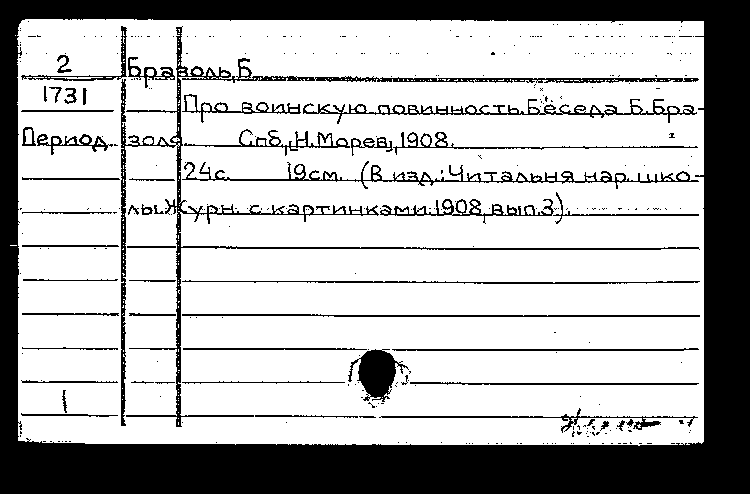 2 Бразоль,Б.
1731 Про воинскую повинность.Беседа Б.Бра-
Период. золя. Спб.,[Н.Морев],1908.
24с. 19см. (В изд.:Читальня нар. шко-
лы.Журн. с картинками.1908,вып.3).
1